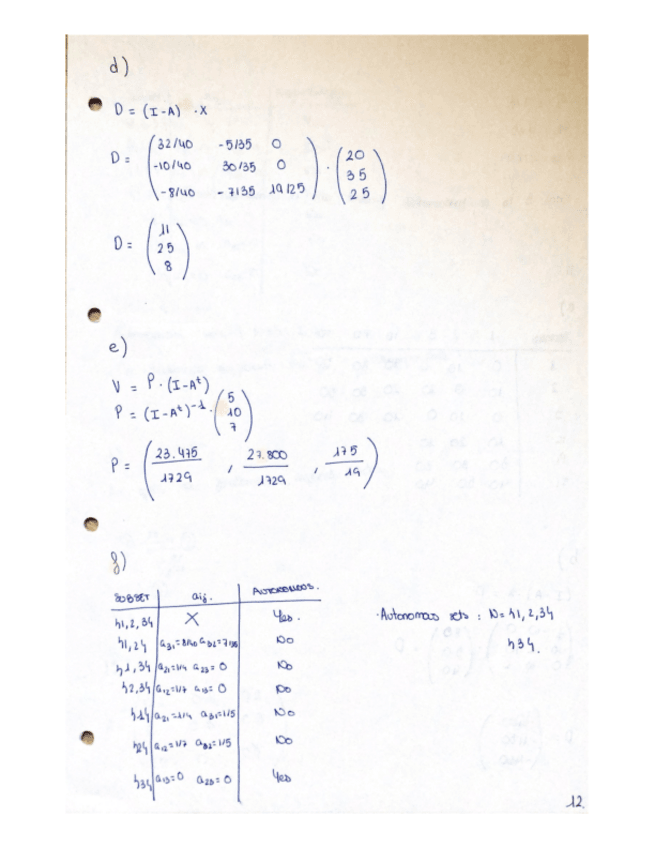 d)
D = (I-A) · X
D = ( 32/40 -5/35 0
-10/40 30/35 0
-8/40 -7/35 19/25 ) · ( 20
35
25 )
D = ( 11
25
8 )
e)
V = P · (I-Aᵗ)
P = (I-Aᵗ)⁻¹ · ( 5
10
7 )
P = ( 23.475/1729 , 27.800/1729 , 175/19 )
f)
SUBSET aij. AUTONOMOUS.
{1,2,3} X Yes.
{1,2} a31=8/40 a32=7/35 No
{1,3} a21=1/4 a23=0 No
{2,3} a12=1/7 a13=0 No
{1} a21=1/4 a31=1/5 No
{2} a12=1/7 a32=1/5 No
{3} a13=0 a23=0 Yes
· Autonomous sets : N={1,2,3}
{3}.
12.